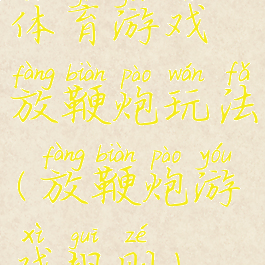 体育游戏
fàng biān pào wán fǎ
放鞭炮玩法
fàng biān pào yóu
(放鞭炮游
xì guī zé
戏规则)